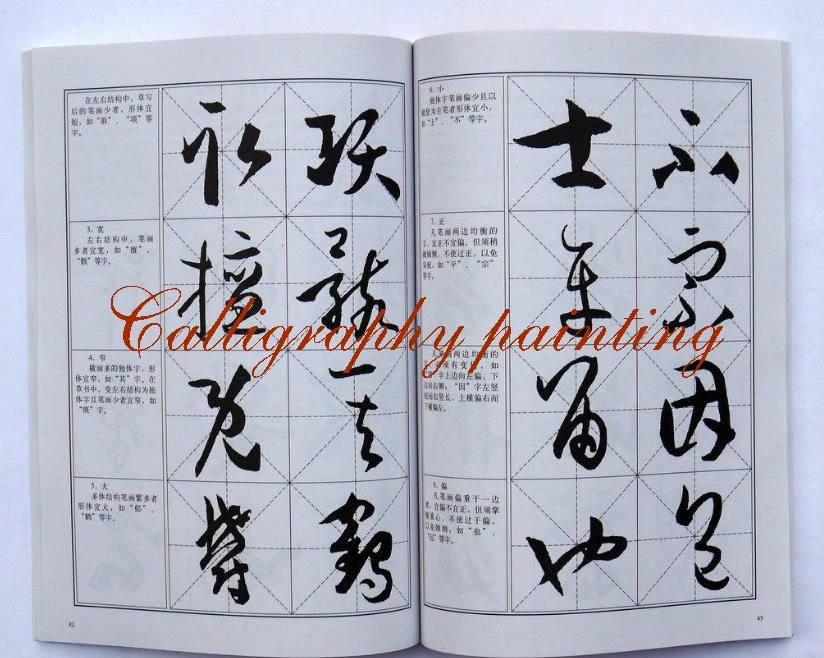 在左右结构中，草写
后的笔画少者，形体宜
短，如“取”、“项”等
字。
3. 宽
左右结构中，笔画
多者宜宽，如“擅”、
等字。
4. 窄
横画多的独体字，形
体宜窄，如“其”字，在
草书中，变左右结构为独
体字且笔画少者宜窄，如
“既”字。
5. 大
多体结构笔画繁多者
形体宜大，如“郁”、
“鹤”等字。
42
6. 小
独体字笔画偏少且以
为主笔者形体宜小，
如“士”、“不”等字。
7. 正
凡笔画两边均衡的
字，宜正不宜偏，但须稍
微倾侧，不使过正，以免
呆板，如“平”、“宗”
等字。
凡笔画两边均衡的
须有变化，如
字上边向左偏，下
边向右侧；“因”字左竖
短而右竖长，上横偏右而
下横偏左。
8. 偏
凡笔画偏重于一边
者，宜偏不宜正，但须掌
握重心，不使过于偏，
以免倾倒，如“也”、
等字。
43
士 不
宗
因
也
Calligraphy painting